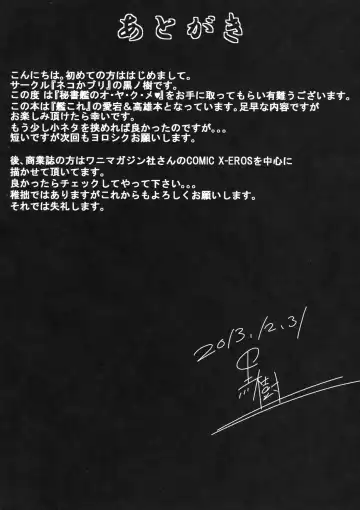 あとがき
こんにちは。初めての方ははじめまして。
サークル『ネコかブリ』の黒ノ樹です。
この度は『秘書艦のオ・ヤ・ク・メ♥』をお手に取ってもらい有難うございます。
この本は『艦これ』の愛宕＆高雄本となっています。足早な内容ですが
お楽しみ頂けたら幸いです。
もう少し小ネタを挟めれば良かったのですが。。。
短いですが次回もヨロシクお願いします。
後、商業誌の方はワニマガジン社さんのCOMIC X-EROSを中心に
描かせて頂いてます。
良かったらチェックしてやって下さい。。。
稚拙ではありますがこれからもよろしくお願いします。
それでは失礼します。
2013.12.31
黒ノ樹